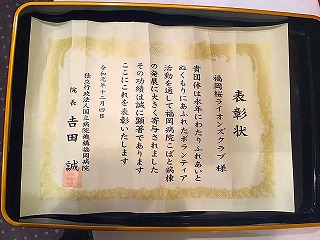 表彰状
福岡桜ライオンズクラブ 様
貴団体は永年にわたりふれあいと
ぬくもりにあふれたボランティア
活動を通して福岡病院こばと病棟
の発展に大きく寄与されました
その功績は誠に顕著であります
ここにこれを表彰いたします
令和元年十二月四日
独立行政法人国立病院機構福岡病院
院長 吉田 誠